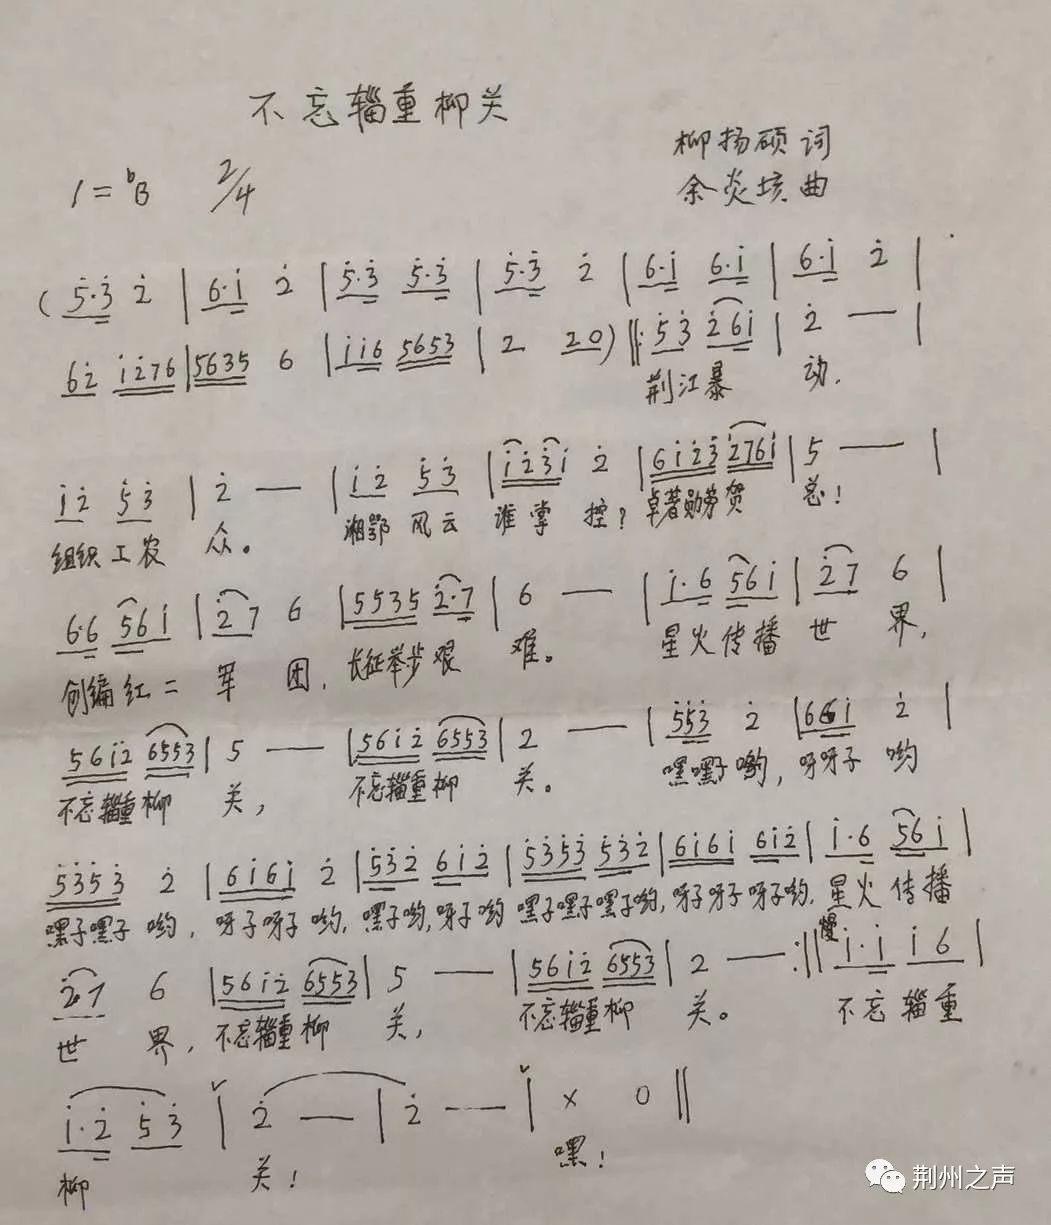 不忘辎重柳关
柳扬硕词
1=ᵇB 2/4
余炎垓曲
( 5̇·3̇ 2̇ | 6·1̇ 2̇ | 5̇·3̇ 5̇·3̇ | 5̇·3̇ 2̇ | 6·1̇ 6·1̇ | 6·1̇ 2̇ |
62̇ 1̇2̇76 | 5635 6 | 1̇1̇6 5653 | 2 20 ) ‖: 5̇3̇ 2̇61̇ | 2̇ — |
荆江暴 动.
1̇2̇ 5̇3̇ | 2̇ — | 1̇2̇ 5̇3̇ | 1̇2̇3̇1̇ 2̇ | 61̇2̇3̇ 2̇761̇ | 5 — |
组织工农 众。 湘鄂风云 谁掌 控? 卓著勋劳贺 总!
6·6 561̇ | 2̇7 6 | 5535 2̇·7 | 6 — | 1̇·6 561̇ | 2̇7 6 |
创编红二 军 团, 长征举步艰 难。 星火传播 世 界,
561̇2̇ 6553 | 5 — | 561̇2̇ 6553 | 2 — | 5̇5̇3̇ 2̇ | 661̇ 2̇ |
不忘辎重柳 关, 不忘辎重柳 关。 嘿嘿子哟, 呀呀子 哟
5̇3̇5̇3̇ 2̇ | 61̇61̇ 2̇ | 5̇3̇2̇ 61̇2̇ | 5̇3̇5̇3̇ 5̇3̇2̇ | 61̇61̇ 61̇2̇ | 1̇·6 561̇ |
嘿子嘿子 哟, 呀子呀子 哟, 嘿子哟, 呀子哟 嘿子嘿子嘿子哟, 呀子呀子呀子哟, 星火传播
慢
2̇7 6 | 561̇2̇ 6553 | 5 — | 561̇2̇ 6553 | 2 — :‖ 1̇·1̇ 1̇6 |
世 界, 不忘辎重柳 关, 不忘辎重柳 关。 不忘辎重
1̇·2̇ 5̇3̇ | 2̇ — | 2̇ — | × 0 ‖
柳 关! 嘿!
荆州之声